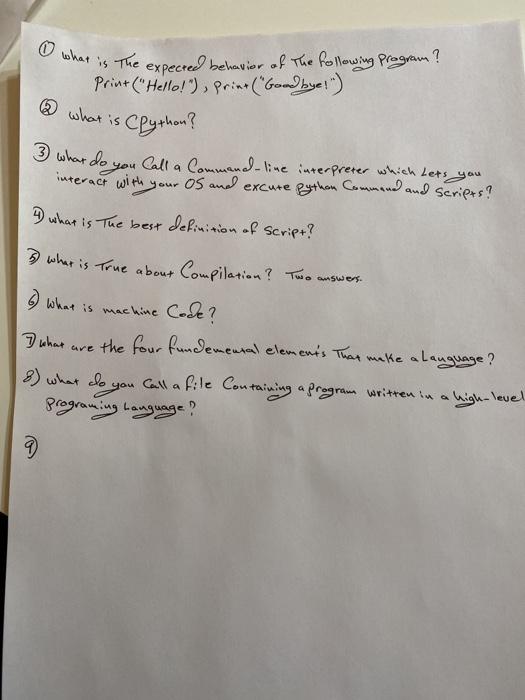 ① what is The expected behavior of The following Program?
Print("Hello!"), Print("Goodbye!")
② what is CPython?
3) what do you Call a Command-line interpreter which Lets you
interact with your OS and excute Python Command and Scripts?
4) what is The best definition of Script?
5) what is True about Compilation? Two answers.
6) What is machine Code?
7) what are the four fundemental elements That make a Language?
8) what do you Call a file Containing a program written in a high-level
Programing Language?
9)